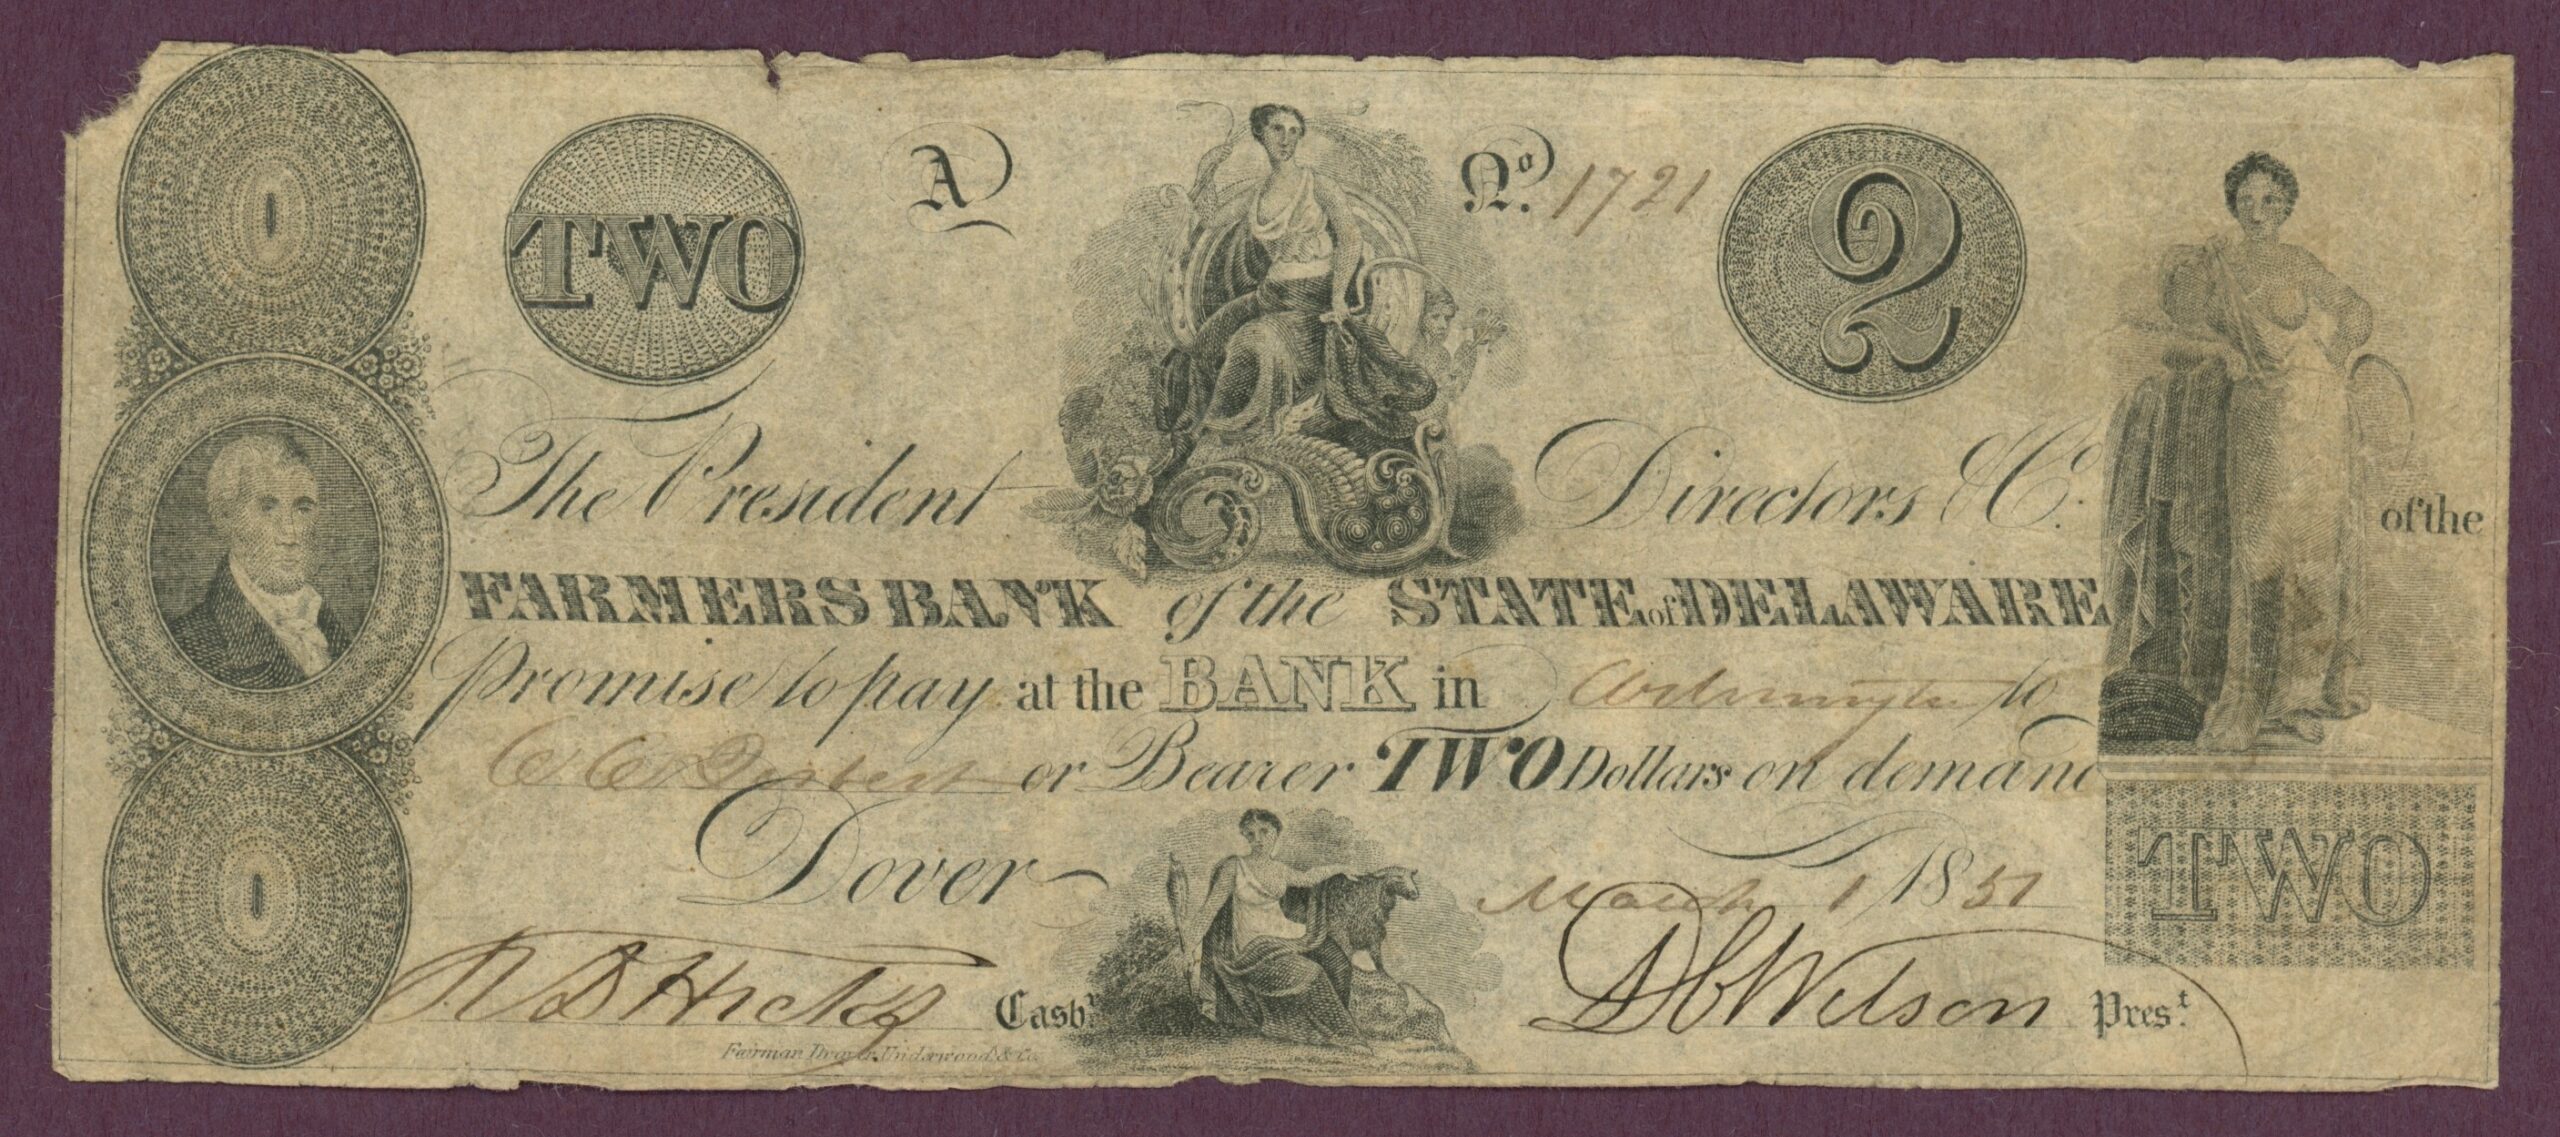 TWO A No. 1721 2
The President Directors & Co. of the
FARMERS BANK of the STATE of DELAWARE
Promise to pay at the BANK in Wilmington to
C C or Bearer TWO Dollars on demand
Dover March 1 1837
TWO
Cashr. Wilson Prest.
Fairman Draper Underwood & Co.